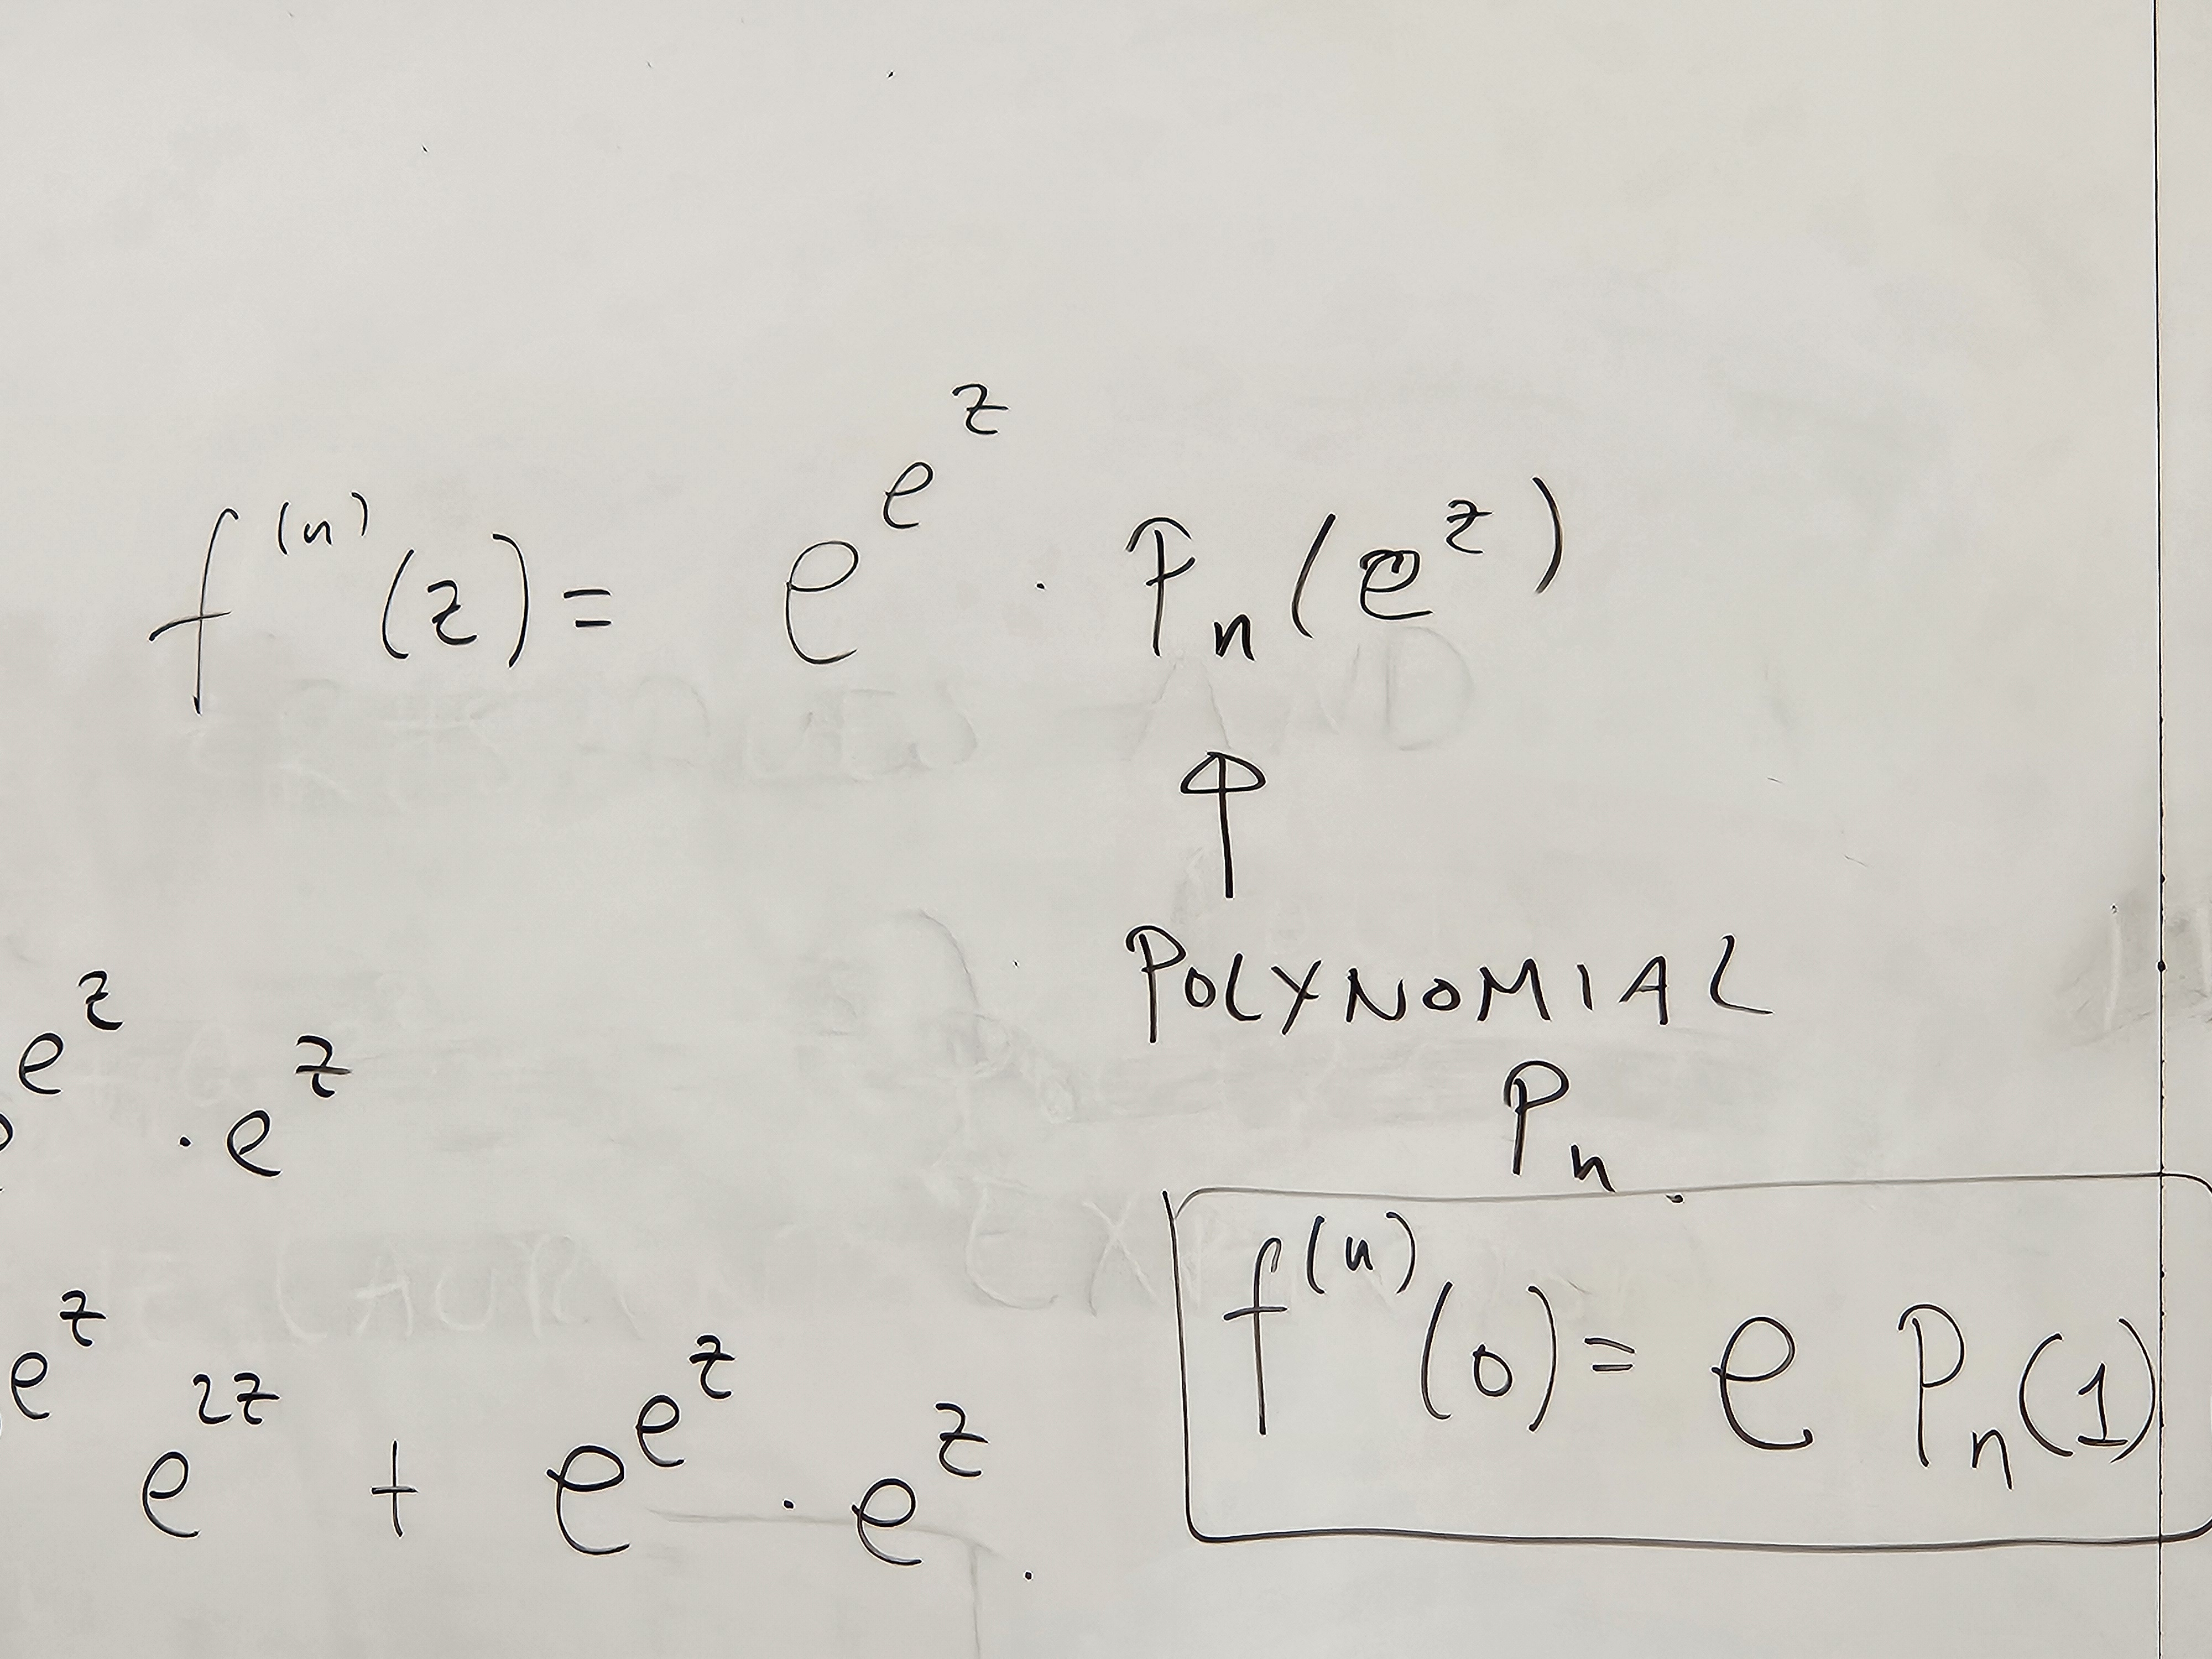 f^{(n)}(z) = e^{e^z} · P_n(e^z)
↑
POLYNOMIAL
P_n.
e^z · e^z
e^z e^{2z} + e^{e^z} · e^z.
f^{(n)}(0) = e P_n(1)